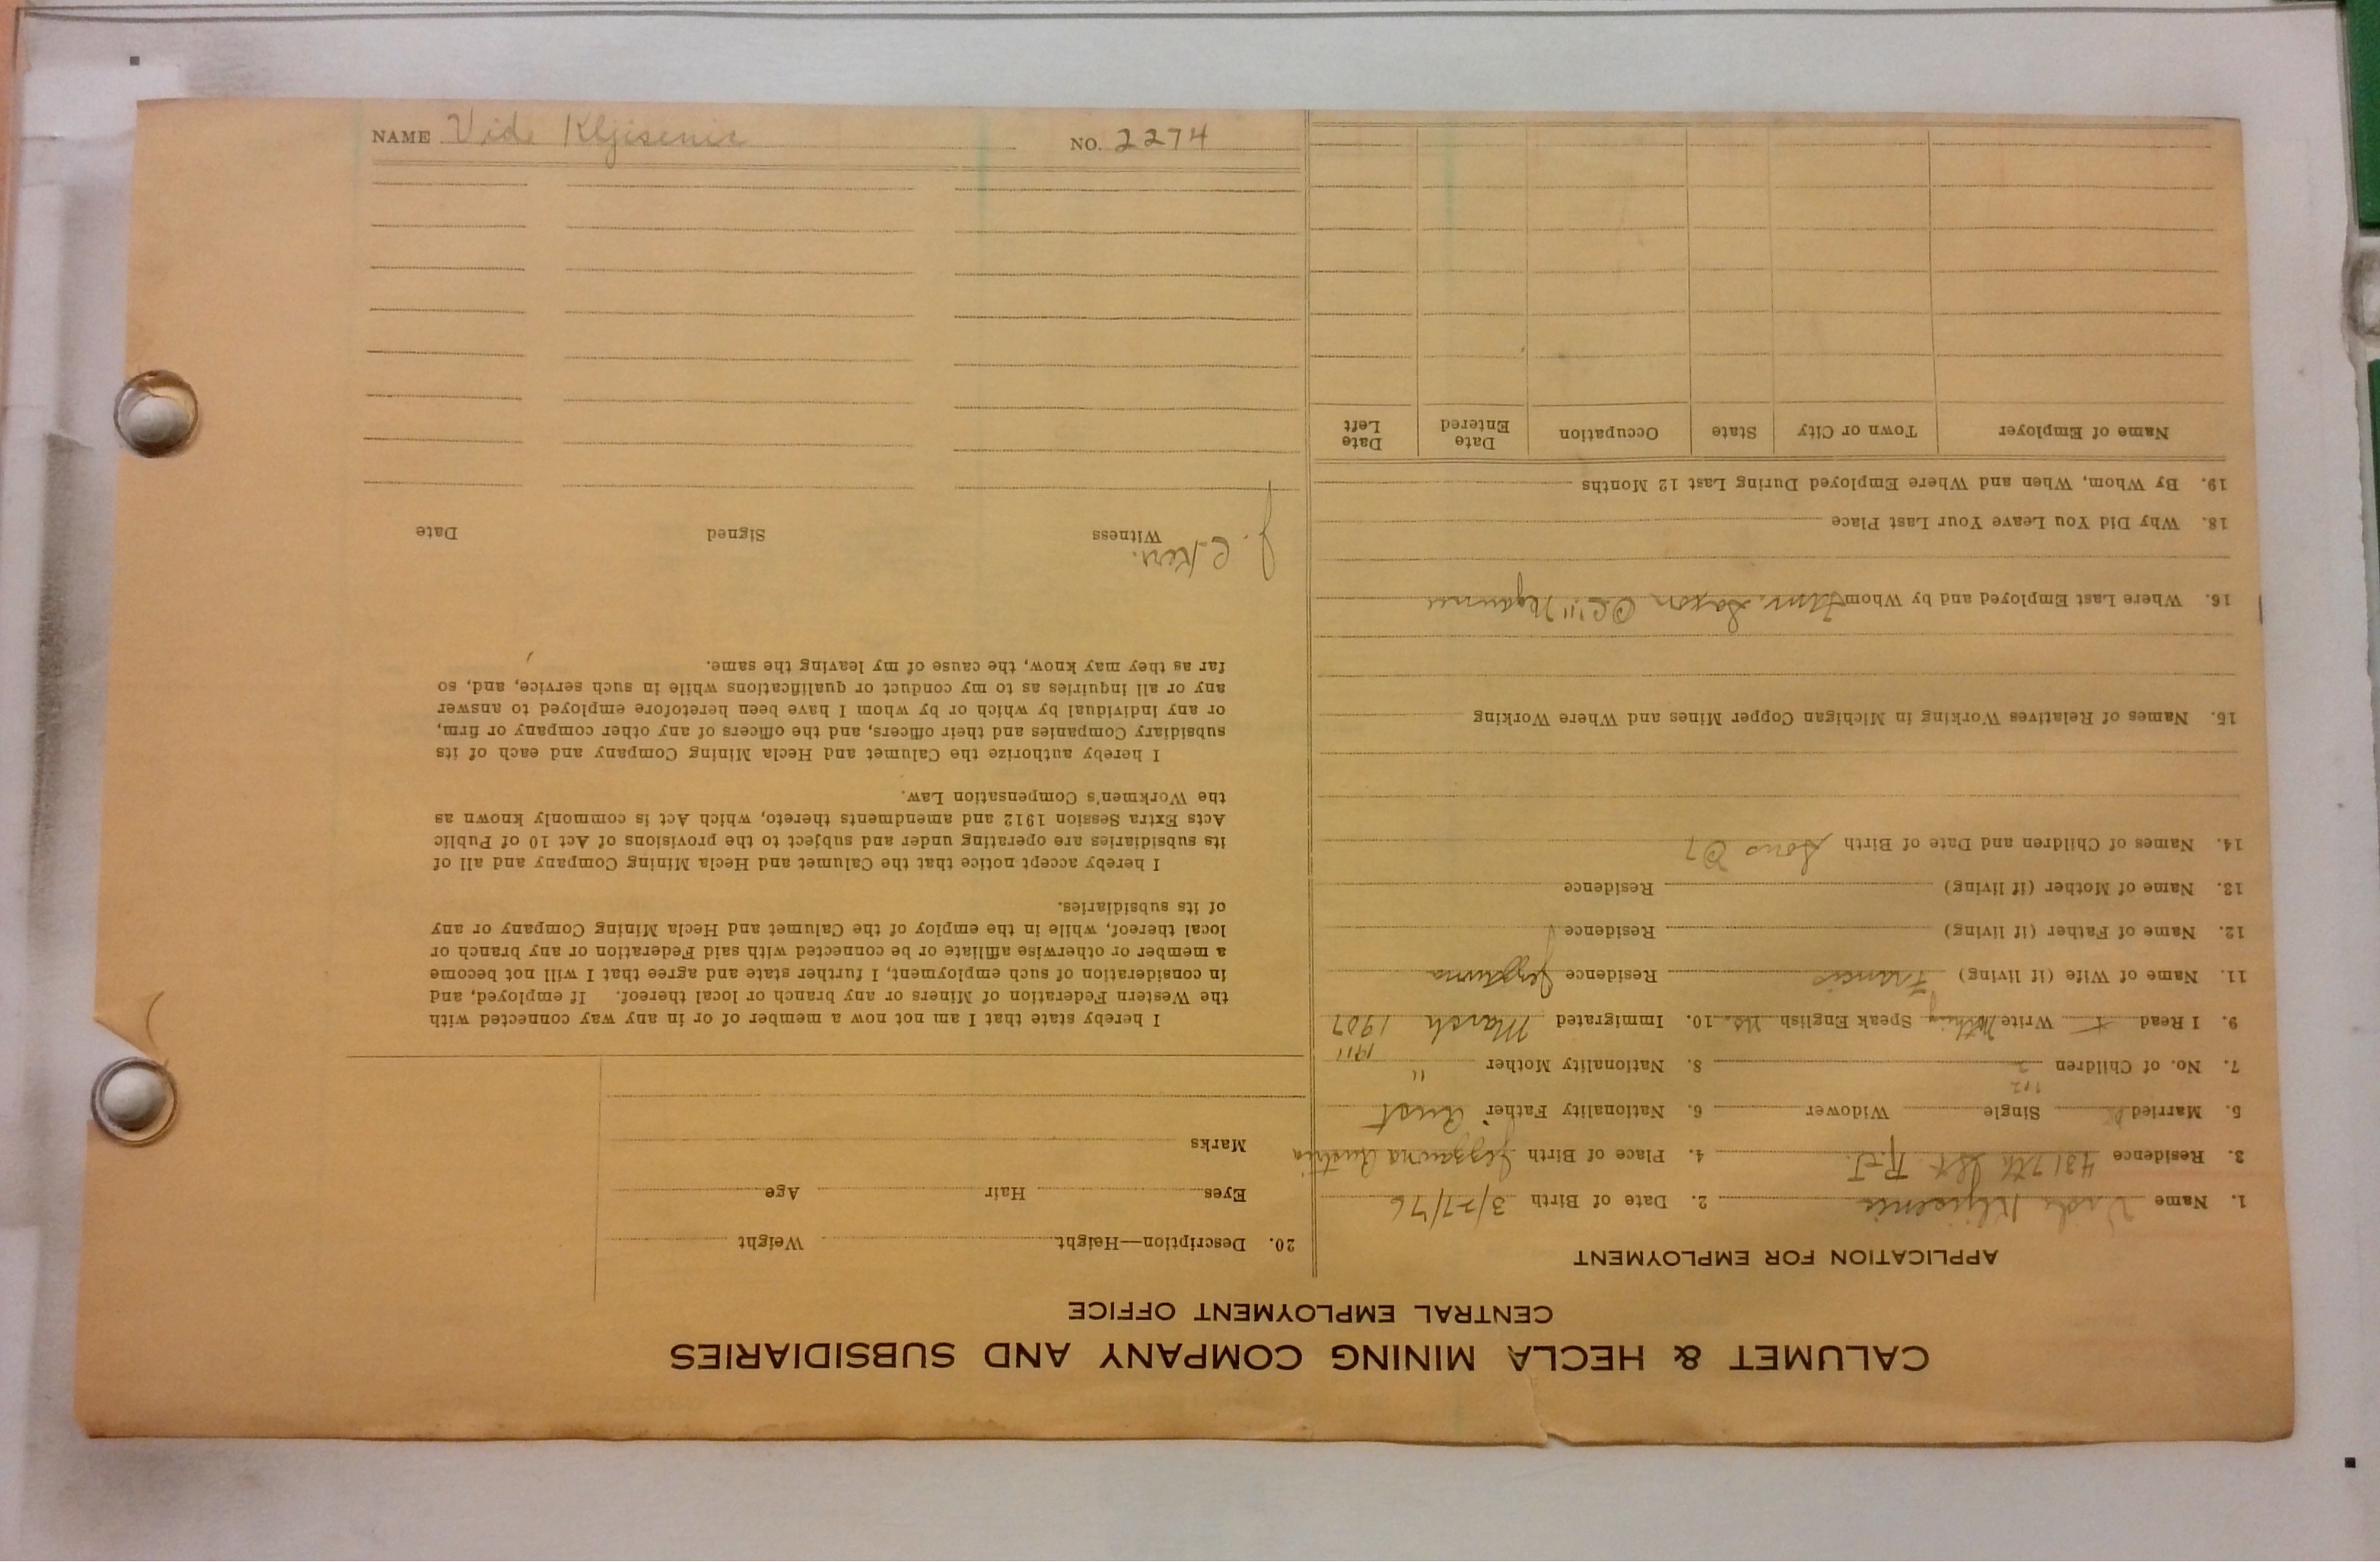 NAME Vide Kljisenic NO. 2274
CALUMET & HECLA MINING COMPANY AND SUBSIDIARIES
CENTRAL EMPLOYMENT OFFICE
APPLICATION FOR EMPLOYMENT
1. Name Vide Kljisenic 2. Date of Birth 3/27/76
3. Residence 431 7th St. 4. Place of Birth Austria
5. Married Single Widower 6. Nationality Father Aust
7. No. of Children 2 8. Nationality Mother "
1911
9. I Read Write Nothing Speak English 10. Immigrated March 1907
11. Name of Wife (if living) Francis Residence
12. Name of Father (if living) Residence
13. Name of Mother (if living) Residence
14. Names of Children and Date of Birth
15. Names of Relatives Working in Michigan Copper Mines and Where Working
16. Where Last Employed and by Whom Negaunee
18. Why Did You Leave Your Last Place
19. By Whom, When and Where Employed During Last 12 Months
Name of Employer Town or City State Occupation Date Entered Date Left
20. Description—Height Weight
Eyes Hair Age
Marks
I hereby state that I am not now a member of or in any way connected with
the Western Federation of Miners or any branch or local thereof. If employed, and
in consideration of such employment, I further state and agree that I will not become
a member or otherwise affiliate or be connected with said Federation or any branch or
local thereof, while in the employ of the Calumet and Hecla Mining Company or any
of its subsidiaries.
I hereby accept notice that the Calumet and Hecla Mining Company and all of
its subsidiaries are operating under and subject to the provisions of Act 10 of Public
Acts Extra Session 1912 and amendments thereto, which Act is commonly known as
the Workmen's Compensation Law.
I hereby authorize the Calumet and Hecla Mining Company and each of its
subsidiary Companies and their officers, and the officers of any other company or firm,
or any individual by which or by whom I have been heretofore employed to answer
any or all inquiries as to my conduct or qualifications while in such service, and, so
far as they may know, the cause of my leaving the same.
J. C. Kerr.
Witness Signed Date